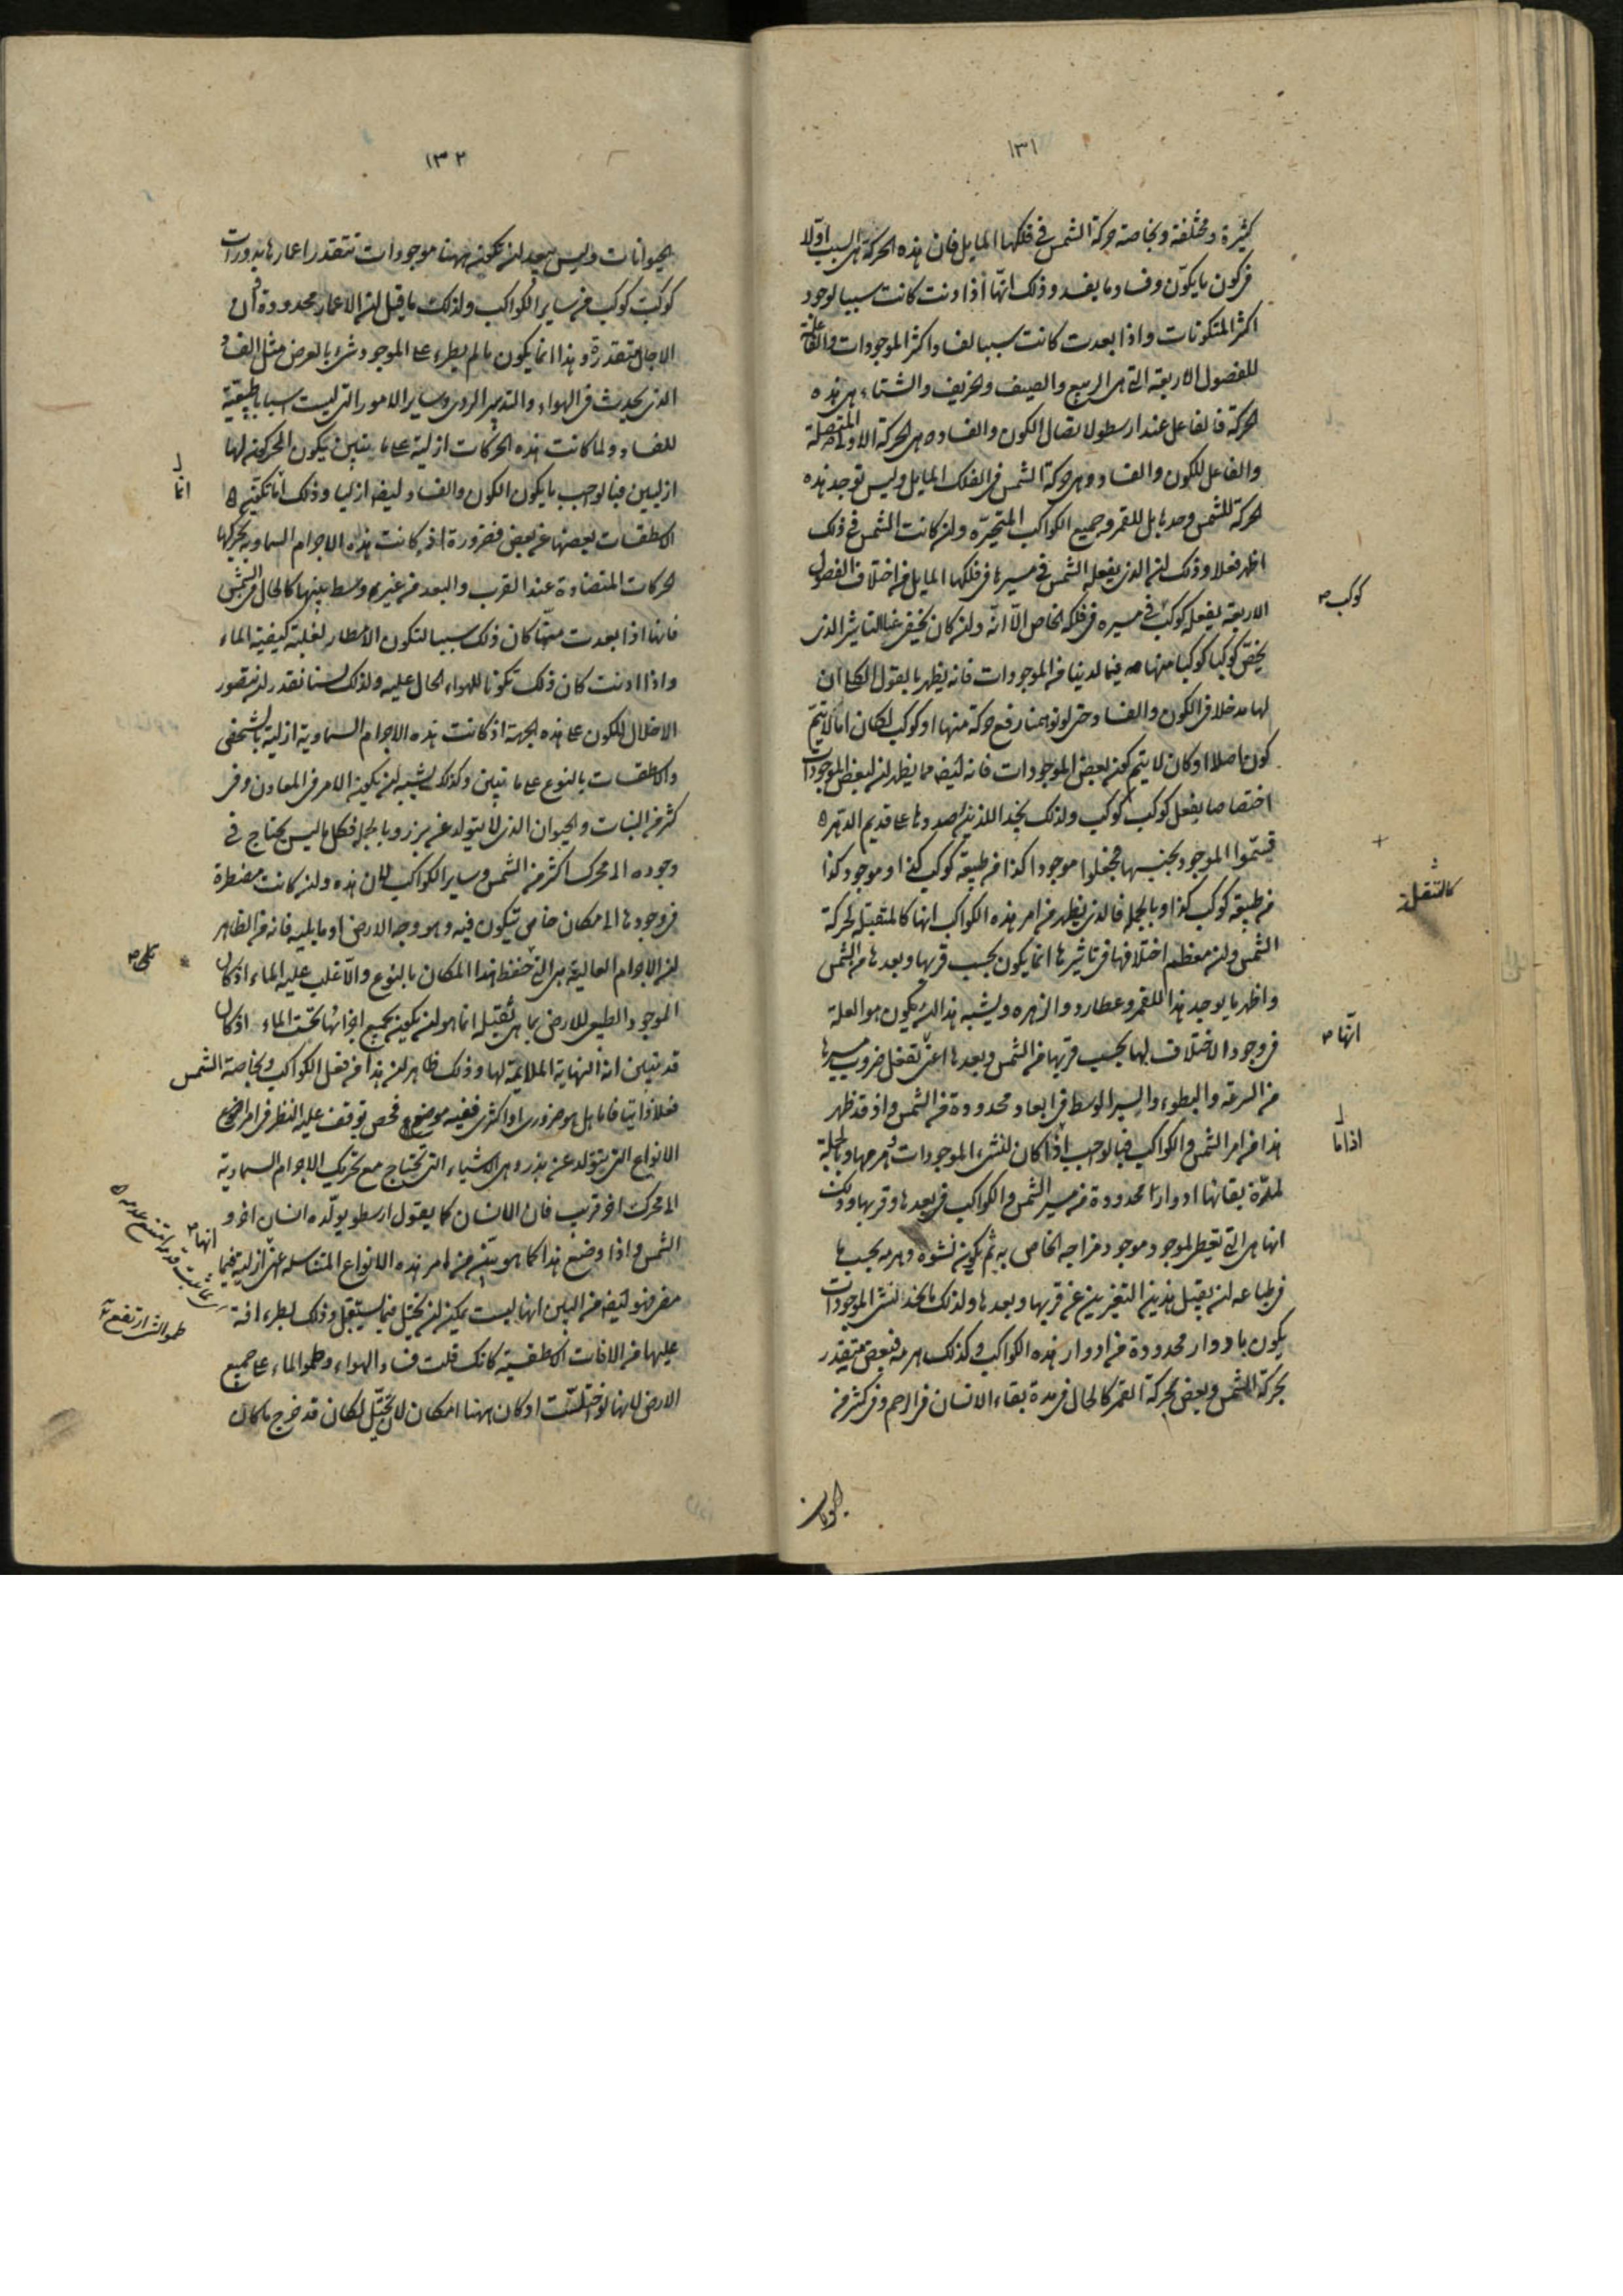 ١٣١
كثيرة ومختلفة وبخاصة حركة الشمس في فلكها المايل فان هذه الحركة هي السبب اولا
في كون ما يكون وفساد ما يفسد وذلك انها اذا دنت كانت سببا لوجود
اكثر المتكونات واذا بعدت كانت سببا لفساد اكثر الموجودات والفاعلة
للفصول الاربعة التي هي الربيع والصيف والخريف والشتاء هي هذه
الحركة فالفاعل عند ارسطو لاتصال الكون والفساد هي الحركة الاولى المتصلة
والفاعل للكون والفساد هي حركة الشمس في الفلك المايل وليس توجد هذه
الحركة للشمس وحدها بل للقمر وجميع الكواكب المتحيرة وان كانت الشمس في ذلك
اظهر فعلا وذلك ان الذي يفعله الشمس في مسيرها في فلكها المايل من اختلاف الفصول
الاربعة يفعله كوكب في مسيره في فلكه الخاص الا انه وان كان يخفى عنا التاثير الذي
كوكب
يخص كوكبا كوكبا منها فيما لدينا من الموجودات فانه يظهر بالقول الكلي ان
لها مدخلا في الكون والفساد حتى لو توهمنا رفع حركة منها او كوكب لكان اما لا يتم
كون اصلا او كان لا يتم كون بعض الموجودات فانه ايضا مما يظهر ان لبعض الموجودات
اختصاصا بفعل كوكب كوكب ولذلك نجد الذين رصدوها على قديم الدهر
قسموا الموجود بحسبها فجعلوا موجودا كذا من طبيعة كوكب كذا وموجود كذا
من طبيعة كوكب كذا وبالجملة فالذي يظهر من امر هذه الكواكب انها كالمتقبلة لحركة
كالمتقبلة
الشمس وان معظم اختلافها في تاثيرها انما يكون بحسب قربها وبعدها من الشمس
واظهر ما يوجد هذا للقمر وعطارد والزهره ويشبه هذا ان يكون هو العلة
في وجود الاختلاف لها بحسب قربها من الشمس وبعدها اعني تفعل ضروب مسيرها
انها
من السرعة والبطوء والسير الوسط في ابعاد محدودة من الشمس واذ قد ظهر
هذا من امر الشمس والكواكب فبالواجب اذا كان لنشء الموجودات وهرمها وبالجملة
اذاما
لمدة بقائها ادوارا محدودة من سير الشمس والكواكب في بعدها وقربها وذلك
انها هي التي تعطي الموجود موجود مزاجه الخاص به ثم يكون نشوه وهرمه بحسب ما
في طباعه ان يقبل هذين التغيرين عن قربها وبعدها ولذلك ما نجد نشء الموجودات
يكون بادوار محدودة من ادوار هذه الكواكب وكذلك هرمه فبعض يتقدر
بحركة الشمس وبعض بحركة القمر كالحال في مدة بقاء الانسان في الرحم وفي كثير من
الحيوانات
١٣٢
الحيوانات وليس يبعد ان يكون ههنا موجودات تتقدر اعمارها بدورات
كوكب كوكب من ساير الكواكب ولذلك ما قيل ان الاعمار محدودة وان
الاجال متقدرة وهذا انما يكون ما لم يطرء على الموجود شيء بالعرض مثل الفساد
الذي يحدث في الهواء والتدبير الردي وساير الامور التي ليست اسبابا طبيعية
للفساد ولما كانت هذه الحركات ازلية على ما يتبين في كون المحركين لها
ازليين فبالواجب ما يكون الكون والفساد ايضا ازليا وذلك انا نكتم
انا
الاسطقسات بعضها عن بعض فضرورة اذ كانت هذه الاجرام السماوية تحركها
الحركات المتضادة عند القرب والبعد من غير وسط بينهما كالحال في الشمس
فانها اذا بعدت عنا كان ذلك سببا لتكون الامطار لغلبة كيفية الماء
واذا دنت كان ذلك تكونا للهواء الحال عليه ولذلك لسنا نقدر ان نتصور
الاخلال للكون على هذه الجهة اذ كانت هذه الاجرام السماوية ازلية بالشخص
والاسطقسات بالنوع على ما تبين وكذلك يشبه ان يكون الامر في المعادن وفي
كثير من النبات والحيوان الذي لا يتولد عن بزر وبالجملة فكل ما ليس يحتاج في
وجوده الى محرك اكثر من الشمس وساير الكواكب فان هذه وان كانت مضطرة
في وجودها الى مكان خاص تتكون فيه وهو وجه الارض او ما يليه فانه من الظاهر
ان الاجرام العالية هي التي تحفظ هذا المكان بالنوع والا غلب عليه الماء اذ كان
الموجود الطبيعي للارض بما هي ثقيلة انما هو ان يكون بجميع اجزائها تحت الماء اذ كان
قد تبين انه النهاية الملايمة لها وذلك ظاهر ان هذا من فعل الكواكب وبخاصة الشمس
فعلا ذاتيا فاما هل هو ضروري او اكثري ففيه موضع فحص توقف عليه النظر في امر اضمحلال
الانواع التي يتولد عن بذر وهي الاشياء التي تحتاج مع تحريك الاجرام السماوية
الى محرك اخر قريب فان الانسان كما يقول ارسطو يولده انسان اخر و
الشمس واذا وضع هذا كما هو بين من امر هذه الانواع المتناسلة اعني ازلية فيما
انها
مضى فهو ايضا من البين انها ليست يمكن ان يختل فيما يستقبل وذلك بطرء افة
عليها من الافات الاسطقسية كانك قلت فساد الهواء وطمو الماء على جميع
طمو الشيء ارتفع
الارض لانها لو اختلت او كان ههنا امكان لان تختل لكان قد خرج ما كان